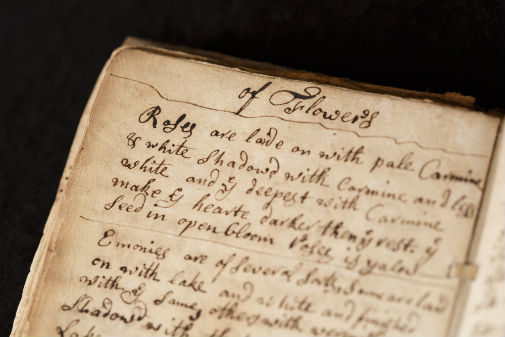 of Flowers
Roses are laide on with pale Carmine
& white shadowd with Carmine and less
white and ye deepest with Carmine
make ye hearte darker then ye rest. ye
seed in open bloom Roses is yalow
Emonies are of several sorts, some are laid
on with lake and white and finished
with ye same others with
shadowd with th
Lake